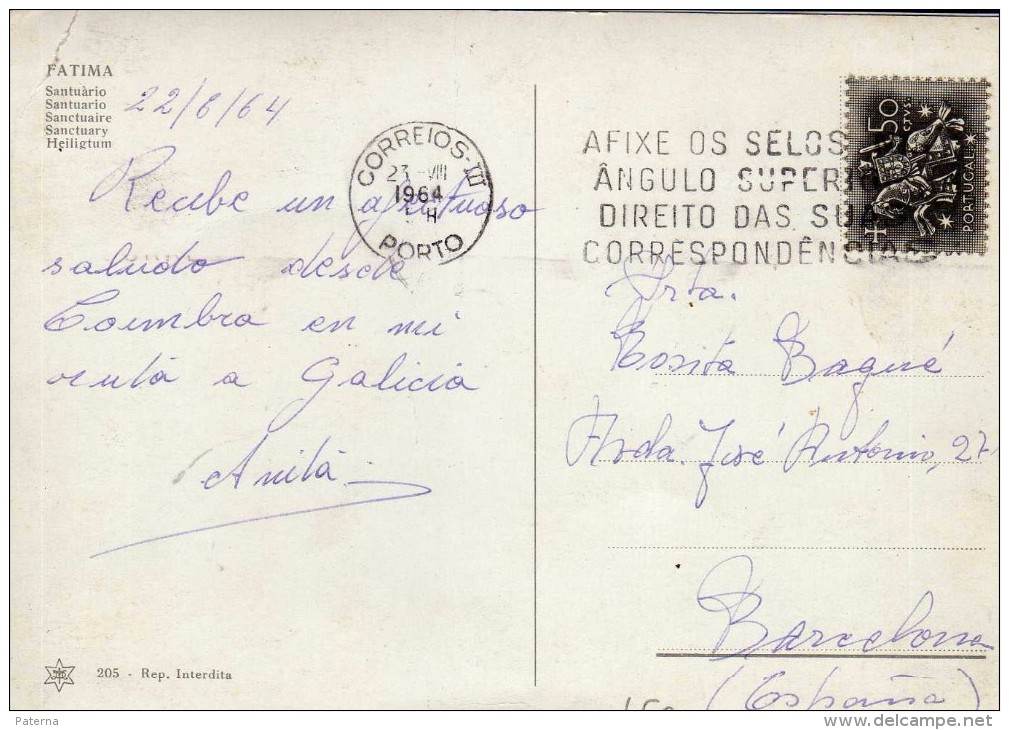 FATIMA
Santuàrio
Santuario
Sanctuaire
Sanctuary
Heiligtum
22/8/64
Recibe un afectuoso
saludo desde
Coimbra en mi
ruta a Galicia
Anita
205 - Rep. Interdita
CORREIOS-III
23-VIII
1964
H
PORTO
AFIXE OS SELOS
ÂNGULO SUPER
DIREITO DAS SUA
CORRESPONDÊNCIAS
50
CTVS.
PORTUGAL
Srta.
Rosita Bagué
Avda. José Antonio, 27
Barcelona
(España)
Paterna
delcampe.net